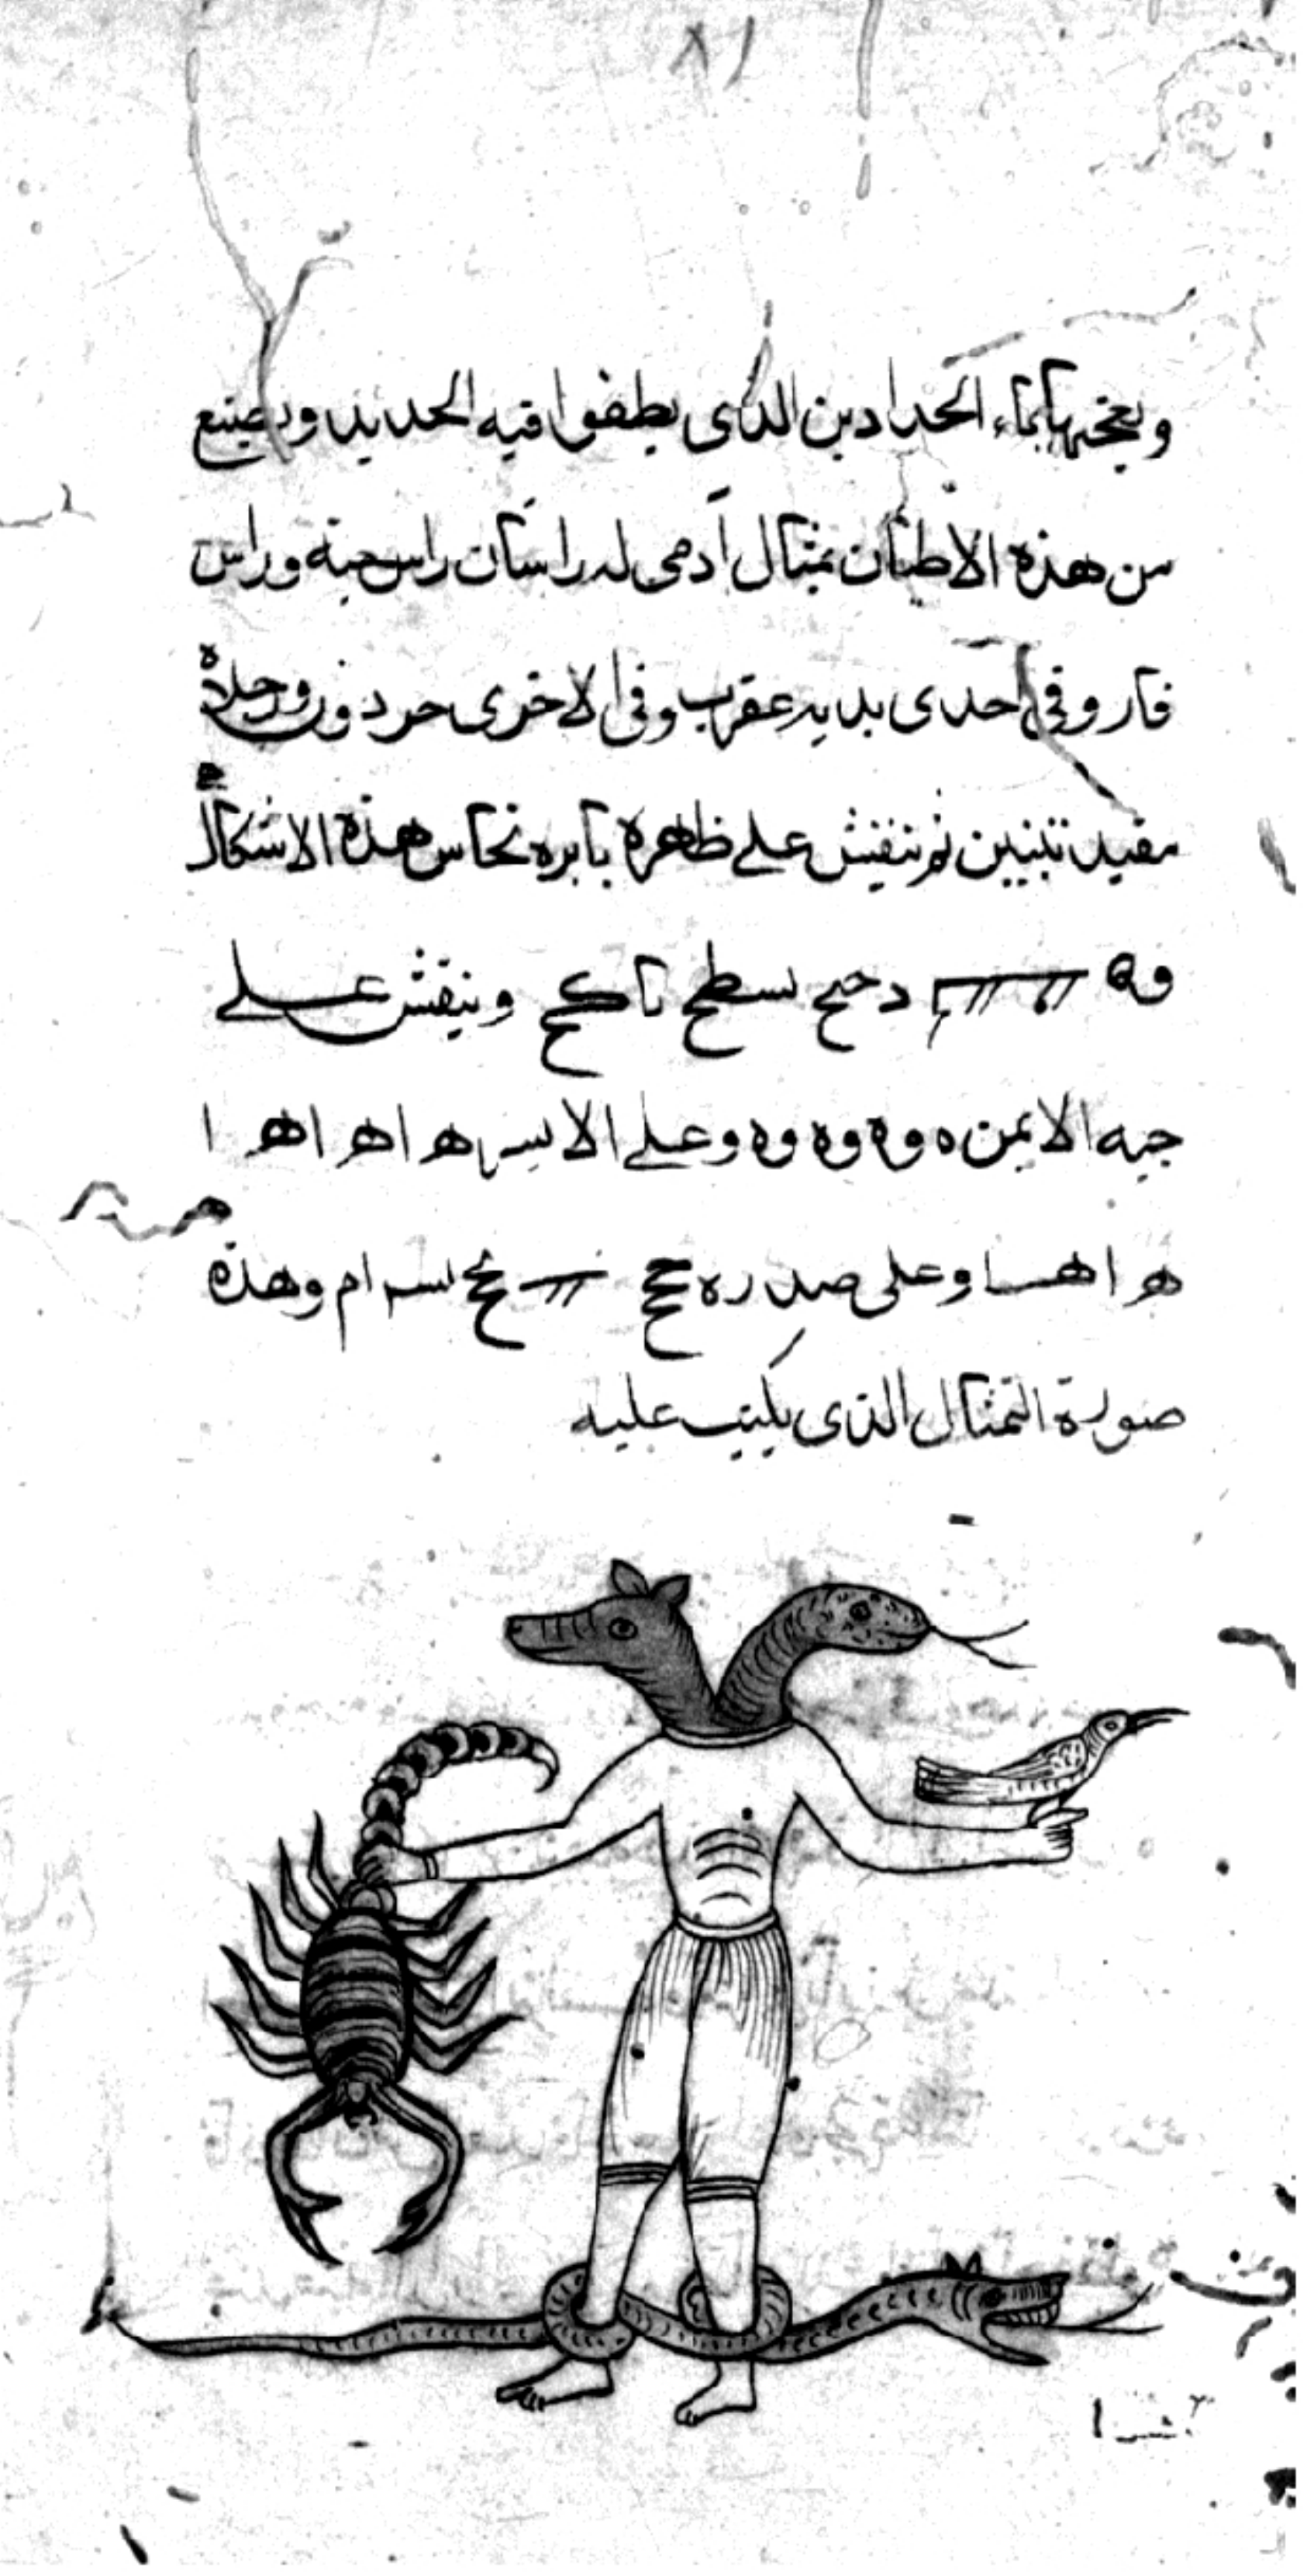 ٨١
ويعجنها بماء الحدادين الذى يطفوا فيه الحديد ويصنع
من هذه الاطيان تمثال آدمى له راسان راس حية وراس
فار وفى احدى يديه عقرب وفى الاخرى حردون ورجلاه
مقيد تنينين ثم ينقش على ظاهره بابره نحاس هذه الاشكال
دحح سطح وينقش على
جبه الايمن ه وه وه وه وعلى الايسر ها ها ها ها
هر اهسا وعلى صدره وهذه
صورة التمثال الذى يكتب عليه